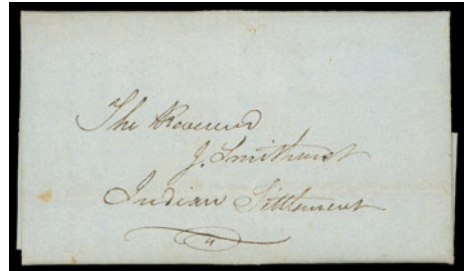 The Reverend
J. Smithurst
Indian Settlement